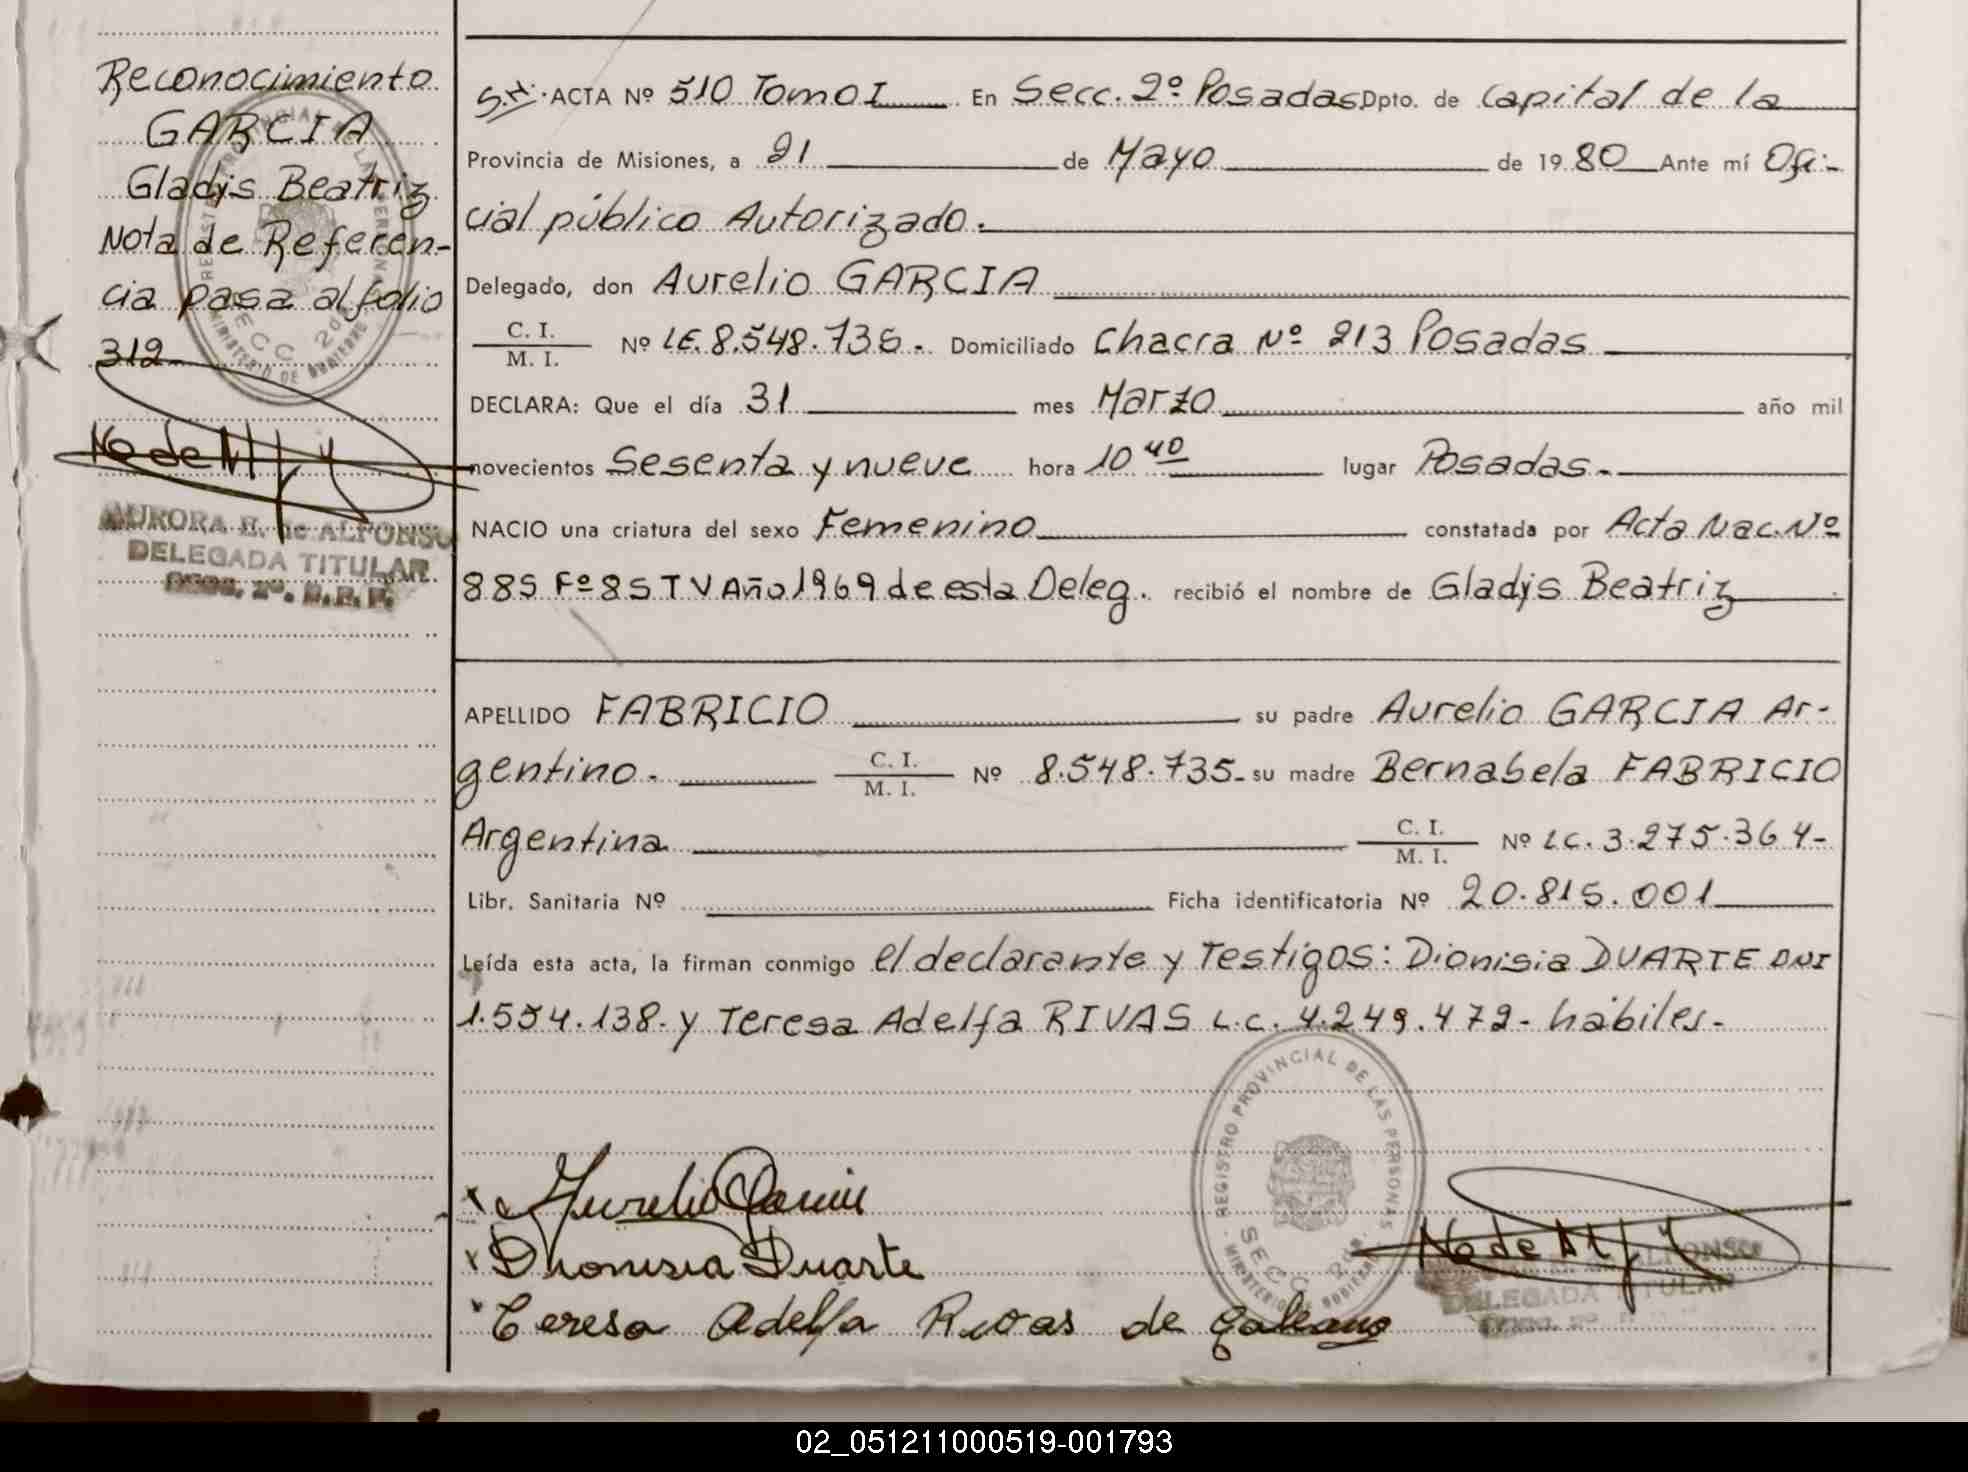 Reconocimiento
GARCIA
Gladys Beatriz
Nota de Referen-
cia pasa al folio
312
AURORA E. de ALFONSO
DELEGADA TITULAR
S.H. ACTA Nº 510 Tomo I En Secc. 2º Posadas Dpto. de Capital de la
Provincia de Misiones, a 21 de Mayo de 1980 Ante mí Ofi-
cial público Autorizado.
Delegado, don Aurelio GARCIA
C. I.
M. I.
Nº LE. 8.548.735. Domiciliado Chacra Nº 213 Posadas
DECLARA: Que el día 31 mes Marzo año mil
novecientos Sesenta y nueve hora 10 40 lugar Posadas.
NACIO una criatura del sexo Femenino constatada por Acta Nac. Nº
885 Fº 85 T V Año 1969 de esta Deleg. recibió el nombre de Gladys Beatriz
APELLIDO FABRICIO su padre Aurelio GARCIA Ar-
gentino. C. I. M. I. Nº 8.548.735- su madre Bernabela FABRICIO
Argentina C. I. M. I. Nº LC. 3.275.364-
Libr. Sanitaria Nº Ficha identificatoria Nº 20.815.001
Leída esta acta, la firman conmigo el declarante y Testigos: Dionisia DUARTE DNI
1.554.138. y Teresa Adelfa RIVAS L.C. 4.249.472- hábiles-
REGISTRO PROVINCIAL DE LAS PERSONAS
SECC 2da.
MINISTERIO DE GOBIERNO
Aurelio Garcia
Dionisia Duarte
Teresa Adelfa Rivas de Galeano
DELEGADA TITULAR
02_051211000519-001793